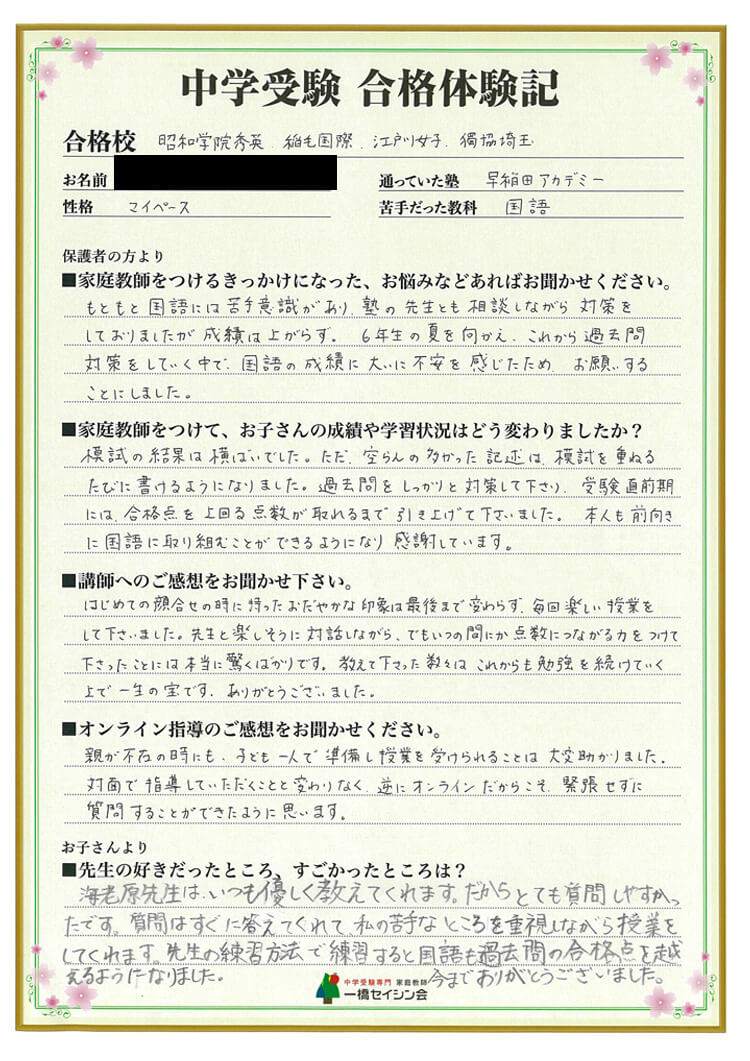 中学受験 合格体験記
合格校 昭和学院秀英、稲毛国際、江戸川女子、獨協埼玉
お名前
通っていた塾 早稲田アカデミー
性格 マイペース
苦手だった教科 国語
保護者の方より
■家庭教師をつけるきっかけになった、お悩みなどあればお聞かせください。
もともと国語には苦手意識があり、塾の先生とも相談しながら対策を
しておりましたが成績は上がらず。 6年生の夏を向かえ、これから過去問
対策をしていく中で、国語の成績に大いに不安を感じたため、お願いする
ことにしました。
■家庭教師をつけて、お子さんの成績や学習状況はどう変わりましたか？
模試の結果は横ばいでした。ただ、空らんの多かった記述は、模試を重ねる
たびに書けるようになりました。過去問をしっかりと対策して下さり、受験直前期
には、合格点を上回る点数が取れるまで引き上げて下さいました。 本人も前向き
に国語に取り組むことができるようになり感謝しています。
■講師へのご感想をお聞かせ下さい。
はじめての顔合せの時に持ったおだやかな印象は最後まで変わらず、毎回楽しい授業を
して下さいました。先生と楽しそうに対話しながら、でもいつの間にか点数につながる力をつけて
下さったことには本当に驚くばかりです。教えて下さった数々はこれからも勉強を続けていく
上で一生の宝です。ありがとうございました。
■オンライン指導のご感想をお聞かせください。
親が不在の時にも、子ども一人で準備し授業を受けられることは大変助かりました。
対面で指導していただくことと変わりなく、逆にオンラインだからこそ、緊張せずに
質問することができたように思います。
お子さんより
■先生の好きだったところ、すごかったところは？
海老原先生は、いつも優しく教えてくれます。だからとても質問しやすかっ
たです。質問はすぐに答えてくれて、私の苦手なところを重視しながら授業を
してくれます。先生の練習方法で練習すると国語も過去問の合格点を越
えるようになりました。 今までありがとうございました。
中学受験専門 家庭教師
一橋セイシン会